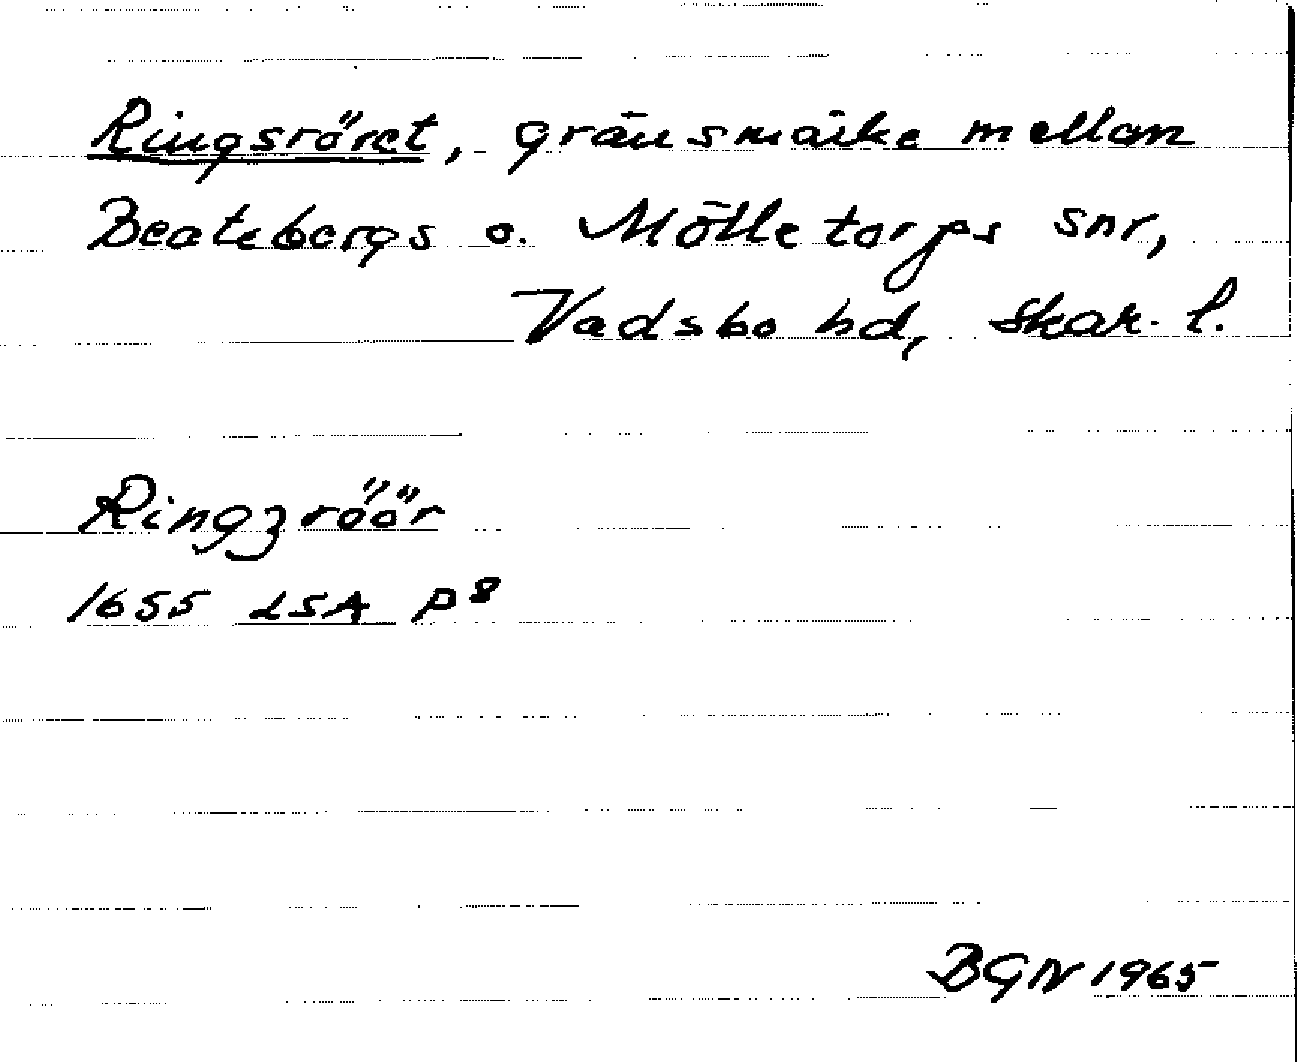 Ringsröret, gränsmärke mellan
Beatebergs o. Mölletorps snr,
Vadsbo hd, Skar. l.
Ringzröör
1655 LSA P8
BGN 1965